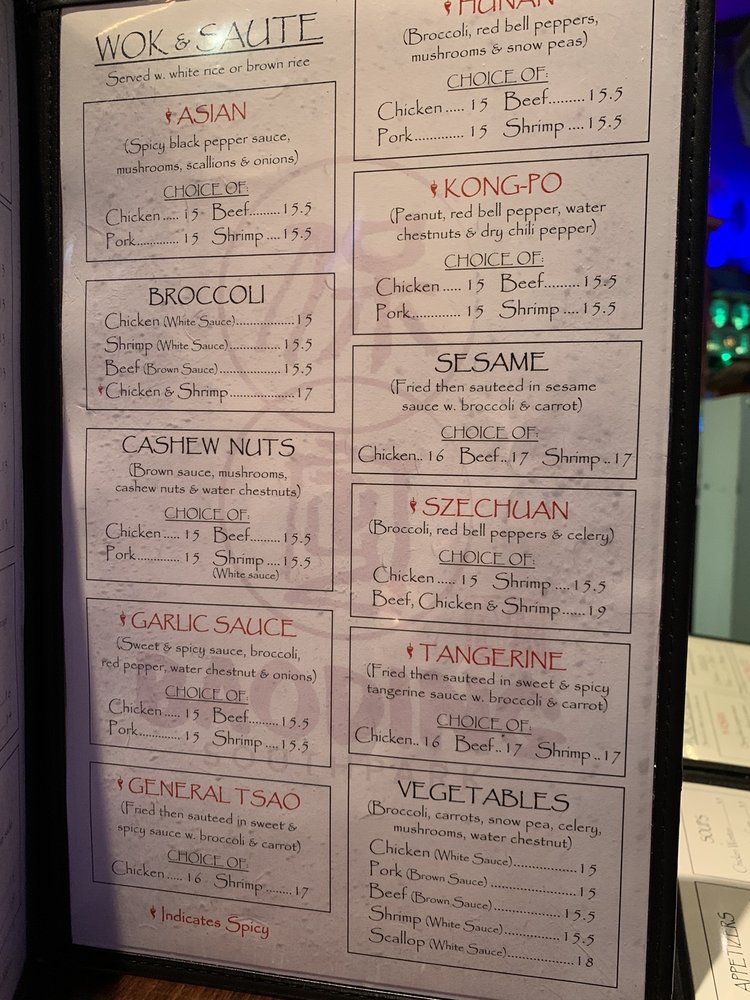 WOK & SAUTE
Served w. white rice or brown rice
ASIAN
(Spicy black pepper sauce,
mushrooms, scallions & onions)
CHOICE OF:
Chicken ..... 15 Beef.........15.5
Pork............. 15 Shrimp ....15.5
BROCCOLI
Chicken (White Sauce)..................15
Shrimp (White Sauce)...............15.5
Beef (Brown Sauce)..................15.5
Chicken & Shrimp..................17
CASHEW NUTS
(Brown sauce, mushrooms,
cashew nuts & water chestnuts)
CHOICE OF:
Chicken ..... 15 Beef.........15.5
Pork............. 15 Shrimp ....15.5
(White sauce)
GARLIC SAUCE
(Sweet & spicy sauce, broccoli,
red pepper, water chestnut & onions)
CHOICE OF:
Chicken ..... 15 Beef.........15.5
Pork............. 15 Shrimp ....15.5
GENERAL TSAO
(Fried then sauteed in sweet &
spicy sauce w. broccoli & carrot)
CHOICE OF:
Chicken ..... 16 Shrimp ........17
Indicates Spicy
HUNAN
(Broccoli, red bell peppers,
mushrooms & snow peas)
CHOICE OF:
Chicken ..... 15 Beef.........15.5
Pork............. 15 Shrimp ....15.5
KONG-PO
(Peanut, red bell pepper, water
chestnuts & dry chili pepper)
CHOICE OF:
Chicken ..... 15 Beef.........15.5
Pork............. 15 Shrimp ....15.5
SESAME
(Fried then sauteed in sesame
sauce w. broccoli & carrot)
CHOICE OF:
Chicken.. 16 Beef..17 Shrimp ..17
SZECHUAN
(Broccoli, red bell peppers & celery)
CHOICE OF:
Chicken ..... 15 Shrimp ....15.5
Beef, Chicken & Shrimp......19
TANGERINE
(Fried then sauteed in sweet & spicy
tangerine sauce w. broccoli & carrot)
CHOICE OF:
Chicken.. 16 Beef..17 Shrimp ..17
VEGETABLES
(Broccoli, carrots, snow pea, celery,
mushrooms, water chestnut)
Chicken (White Sauce)....................15
Pork (Brown Sauce).....................15
Beef (Brown Sauce)....................15.5
Shrimp (White Sauce)................15.5
Scallop (White Sauce)..................18
SOUPS
APPETIZERS